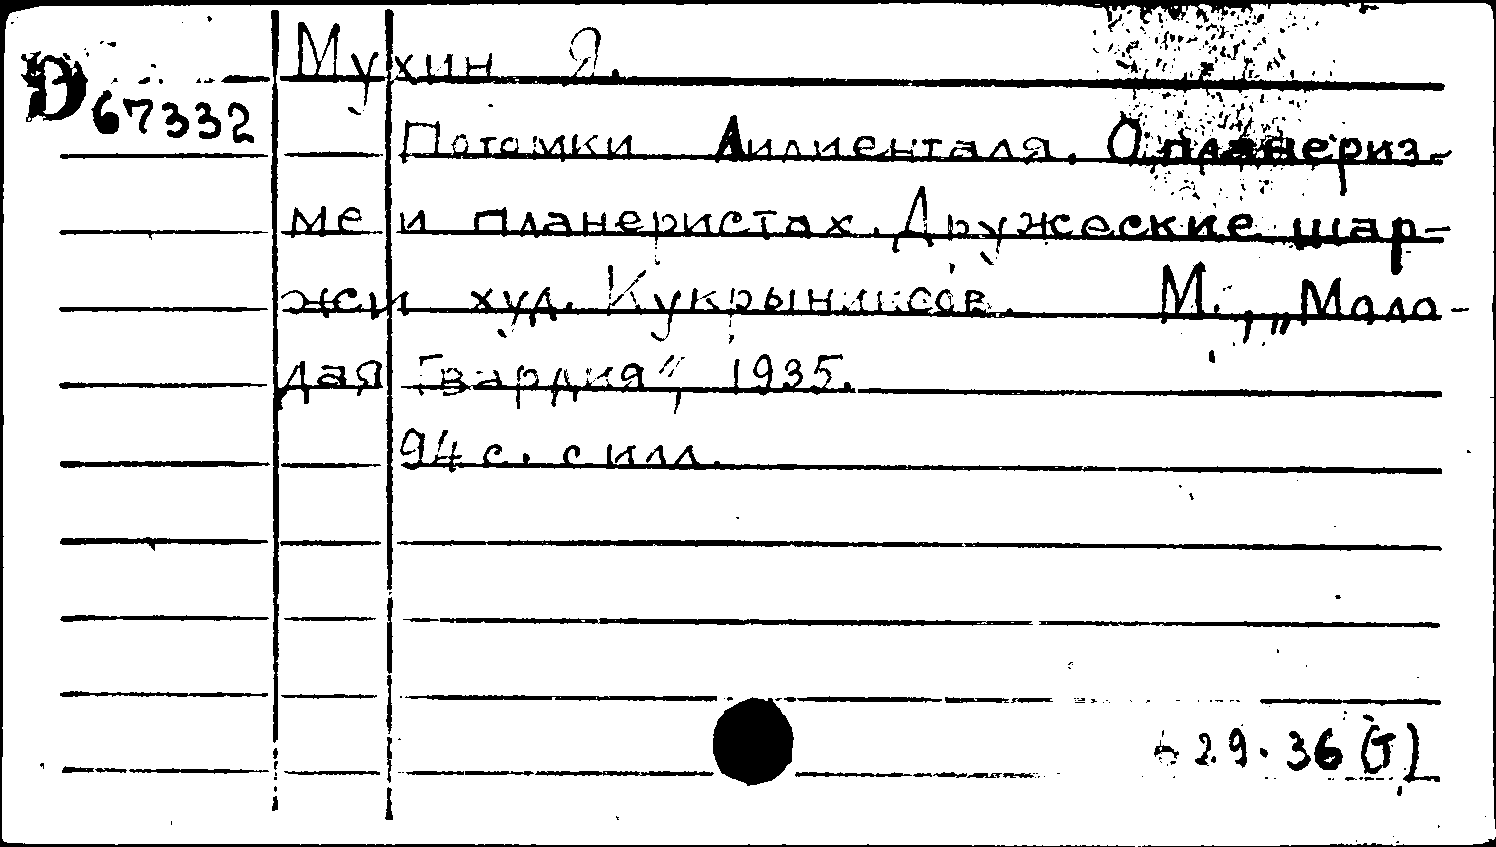 Мухин Я.
В 67332
Потомки Лилиенталя. О планериз-
ме и планеристах. Дружеские шар-
жи худ. Кукрыниксов. М., „Моло-
дая Гвардия", 1935.
94 с. с илл.
629.36(J)